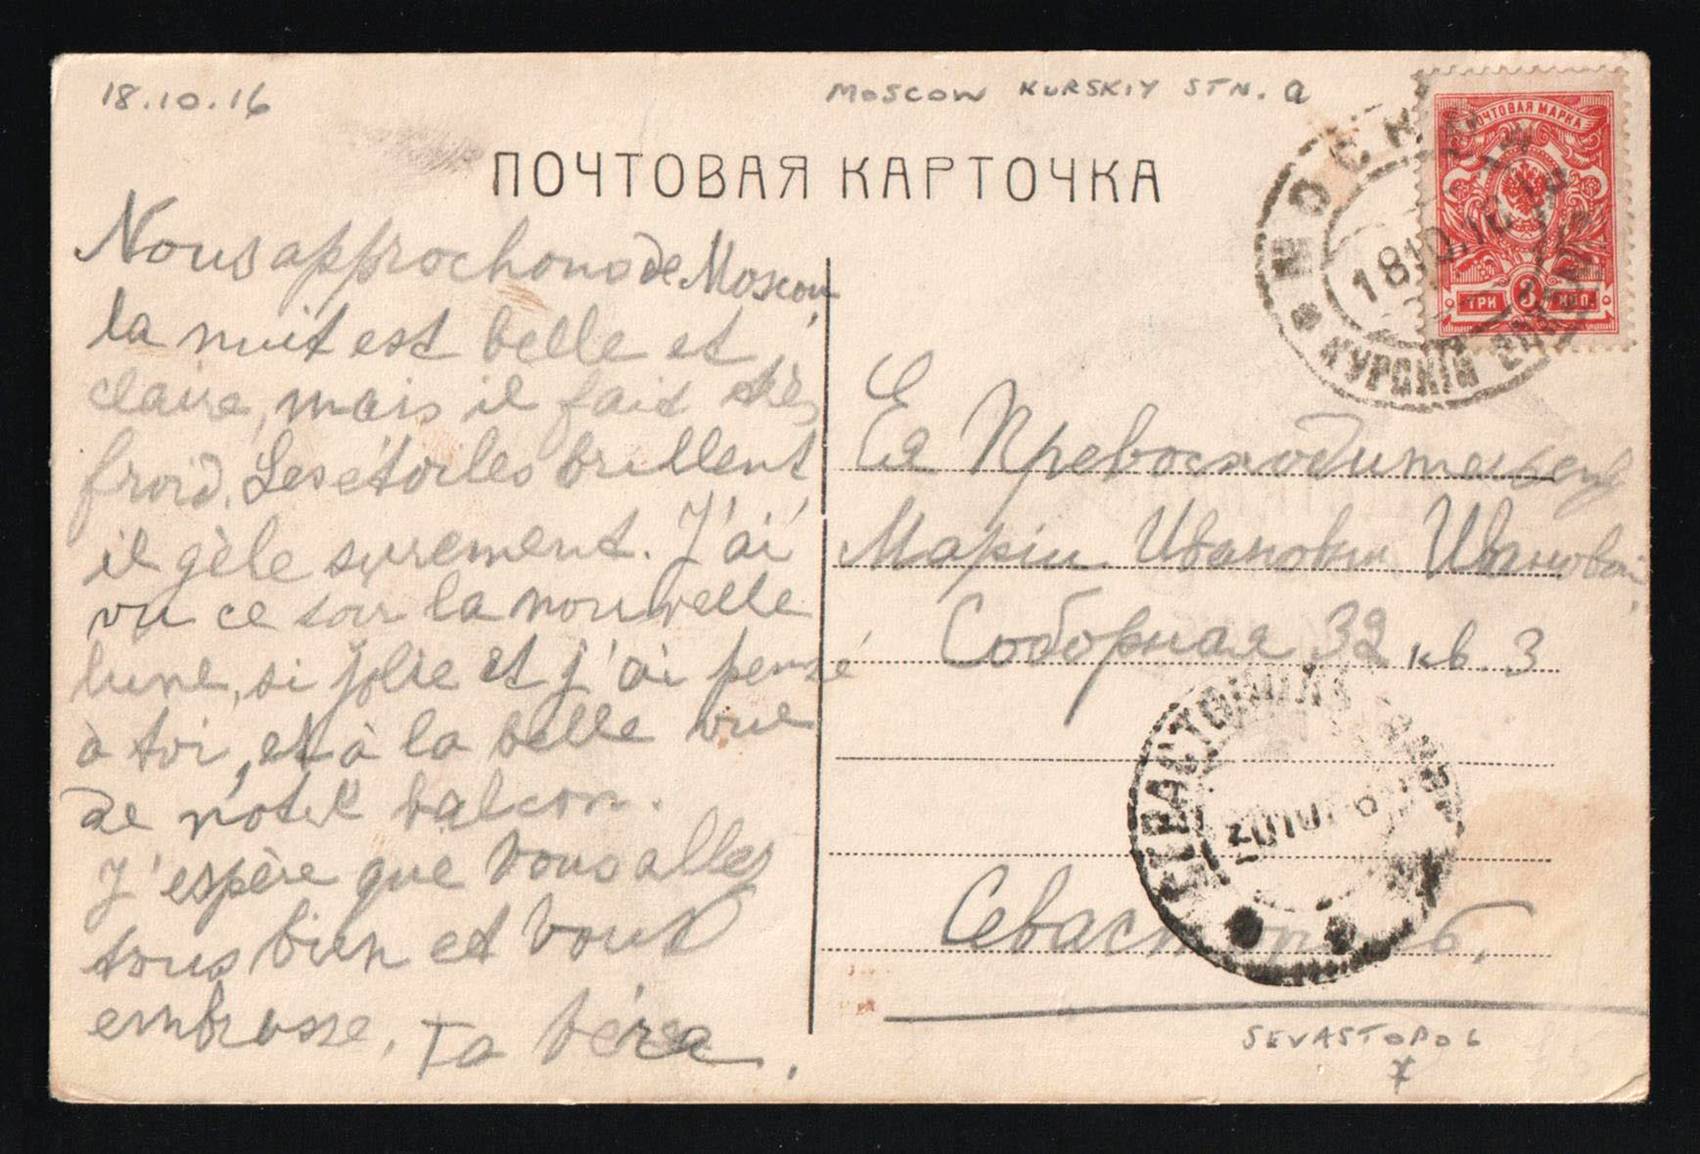 18.10.16
MOSCOW KURSKIY STN. a
ПОЧТОВАЯ КАРТОЧКА
ПОЧТОВАЯ МАРКА
ТРИ 3 КОП.
МОСКВА
18.10.16
КУРСКІЙ ВОКЗАЛЪ
Nous approchons de Moscou
la nuit est belle et
claire, mais il fait très
froid. Les étoiles brillent
il gèle surement. J'ai
vu ce soir la nouvelle
lune, si jolie et j'ai pensé
à toi, et à la belle vue
de notre balcon.
J'espère que vous allez
tous bien et vous
embrasse. Ta Véra.
Ея Превосходительству
Маріи Ивановн Ивановой
Соборная 32 кв. 3
СЕВАСТОПОЛЬ
20.10.16
Севастополь.
SEVASTOPOL
7